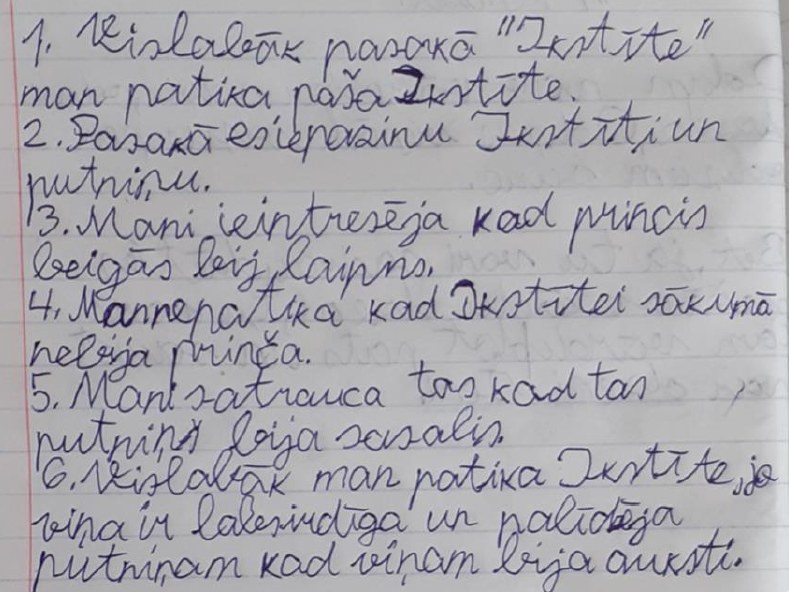 1. Vislabāk pasakā "Ikstīte"
man patika paša Ikstīte.
2. Pasakā es iepazinu Ikstīti un
putniņu.
3. Mani ieintresēja kad princis
beigās bij laipns.
4. Man nepatika kad Ikstītei sākumā
nebija prinča.
5. Mani satrauca tas kad tas
putniņš bija sasalis.
6. Vislabāk man patika Ikstīte, jo
viņa ir labsirdīga un palīdēja
putniņam kad viņam bija auksti.